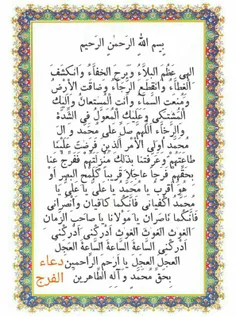 بِسمِ اللهِ الرَّحمٰنِ الرَّحيمِ
اِلٰهي عَظُمَ الْبَلاَّءُ وَبَرِحَ الْخَفاَّءُ وَانْكَشَفَ
الْغِطاَّءُ وَانْقَطَعَ الرَّجاَّءُ وَضاقَتِ الْأَرْضُ
وَمُنِعَتِ السَّماَّءُ وَأنْتَ الْمُسْتَعانُ وَاِلَيْكَ
الْمُشْتَكىٰ وَعَلَيْكَ الْمُعَوَّلُ فِي الشِّدَّةِ
وَالرَّخاَّءِ اَللّٰهُمَّ صَلِّ عَلىٰ مُحَمَّدٍ وَآلِ
مُحَمَّدٍ اُولِي الْأَمْرِ الَّذينَ فَرَضْتَ عَلَيْنا
طاعَتَهُمْ وَعَرَّفْتَنا بِذٰلِكَ مَنْزِلَتَهُمْ فَفَرِّجْ عَنّا
بِحَقِّهِمْ فَرَجاً عاجِلاً قَريباً كَلَمْحِ الْبَصَرِ اَوْ
هُوَ اَقْرَبُ يا مُحَمَّدُ يا عَلِيُّ يا عَلِيُّ يا
مُحَمَّدُ اِكْفِياني فَاِنَّكُما كافِيانِ وَانْصُراني
فَاِنَّكُما ناصِرانِ يا مَوْلانا يا صاحِبَ الزَّمانِ
الْغَوْثَ الْغَوْثَ الْغَوْثَ اَدْرِكْني اَدْرِكْني
اَدْرِكْني السّاعَةَ السّاعَةَ السّاعَةَ الْعَجَلَ
الْعَجَلَ الْعَجَلَ يا اَرْحَمَ الرّاحِمينَ
بِحَقِّ مُحَمَّدٍ وَآلِهِ الطّاهِرينَ
دعاء
الفرج